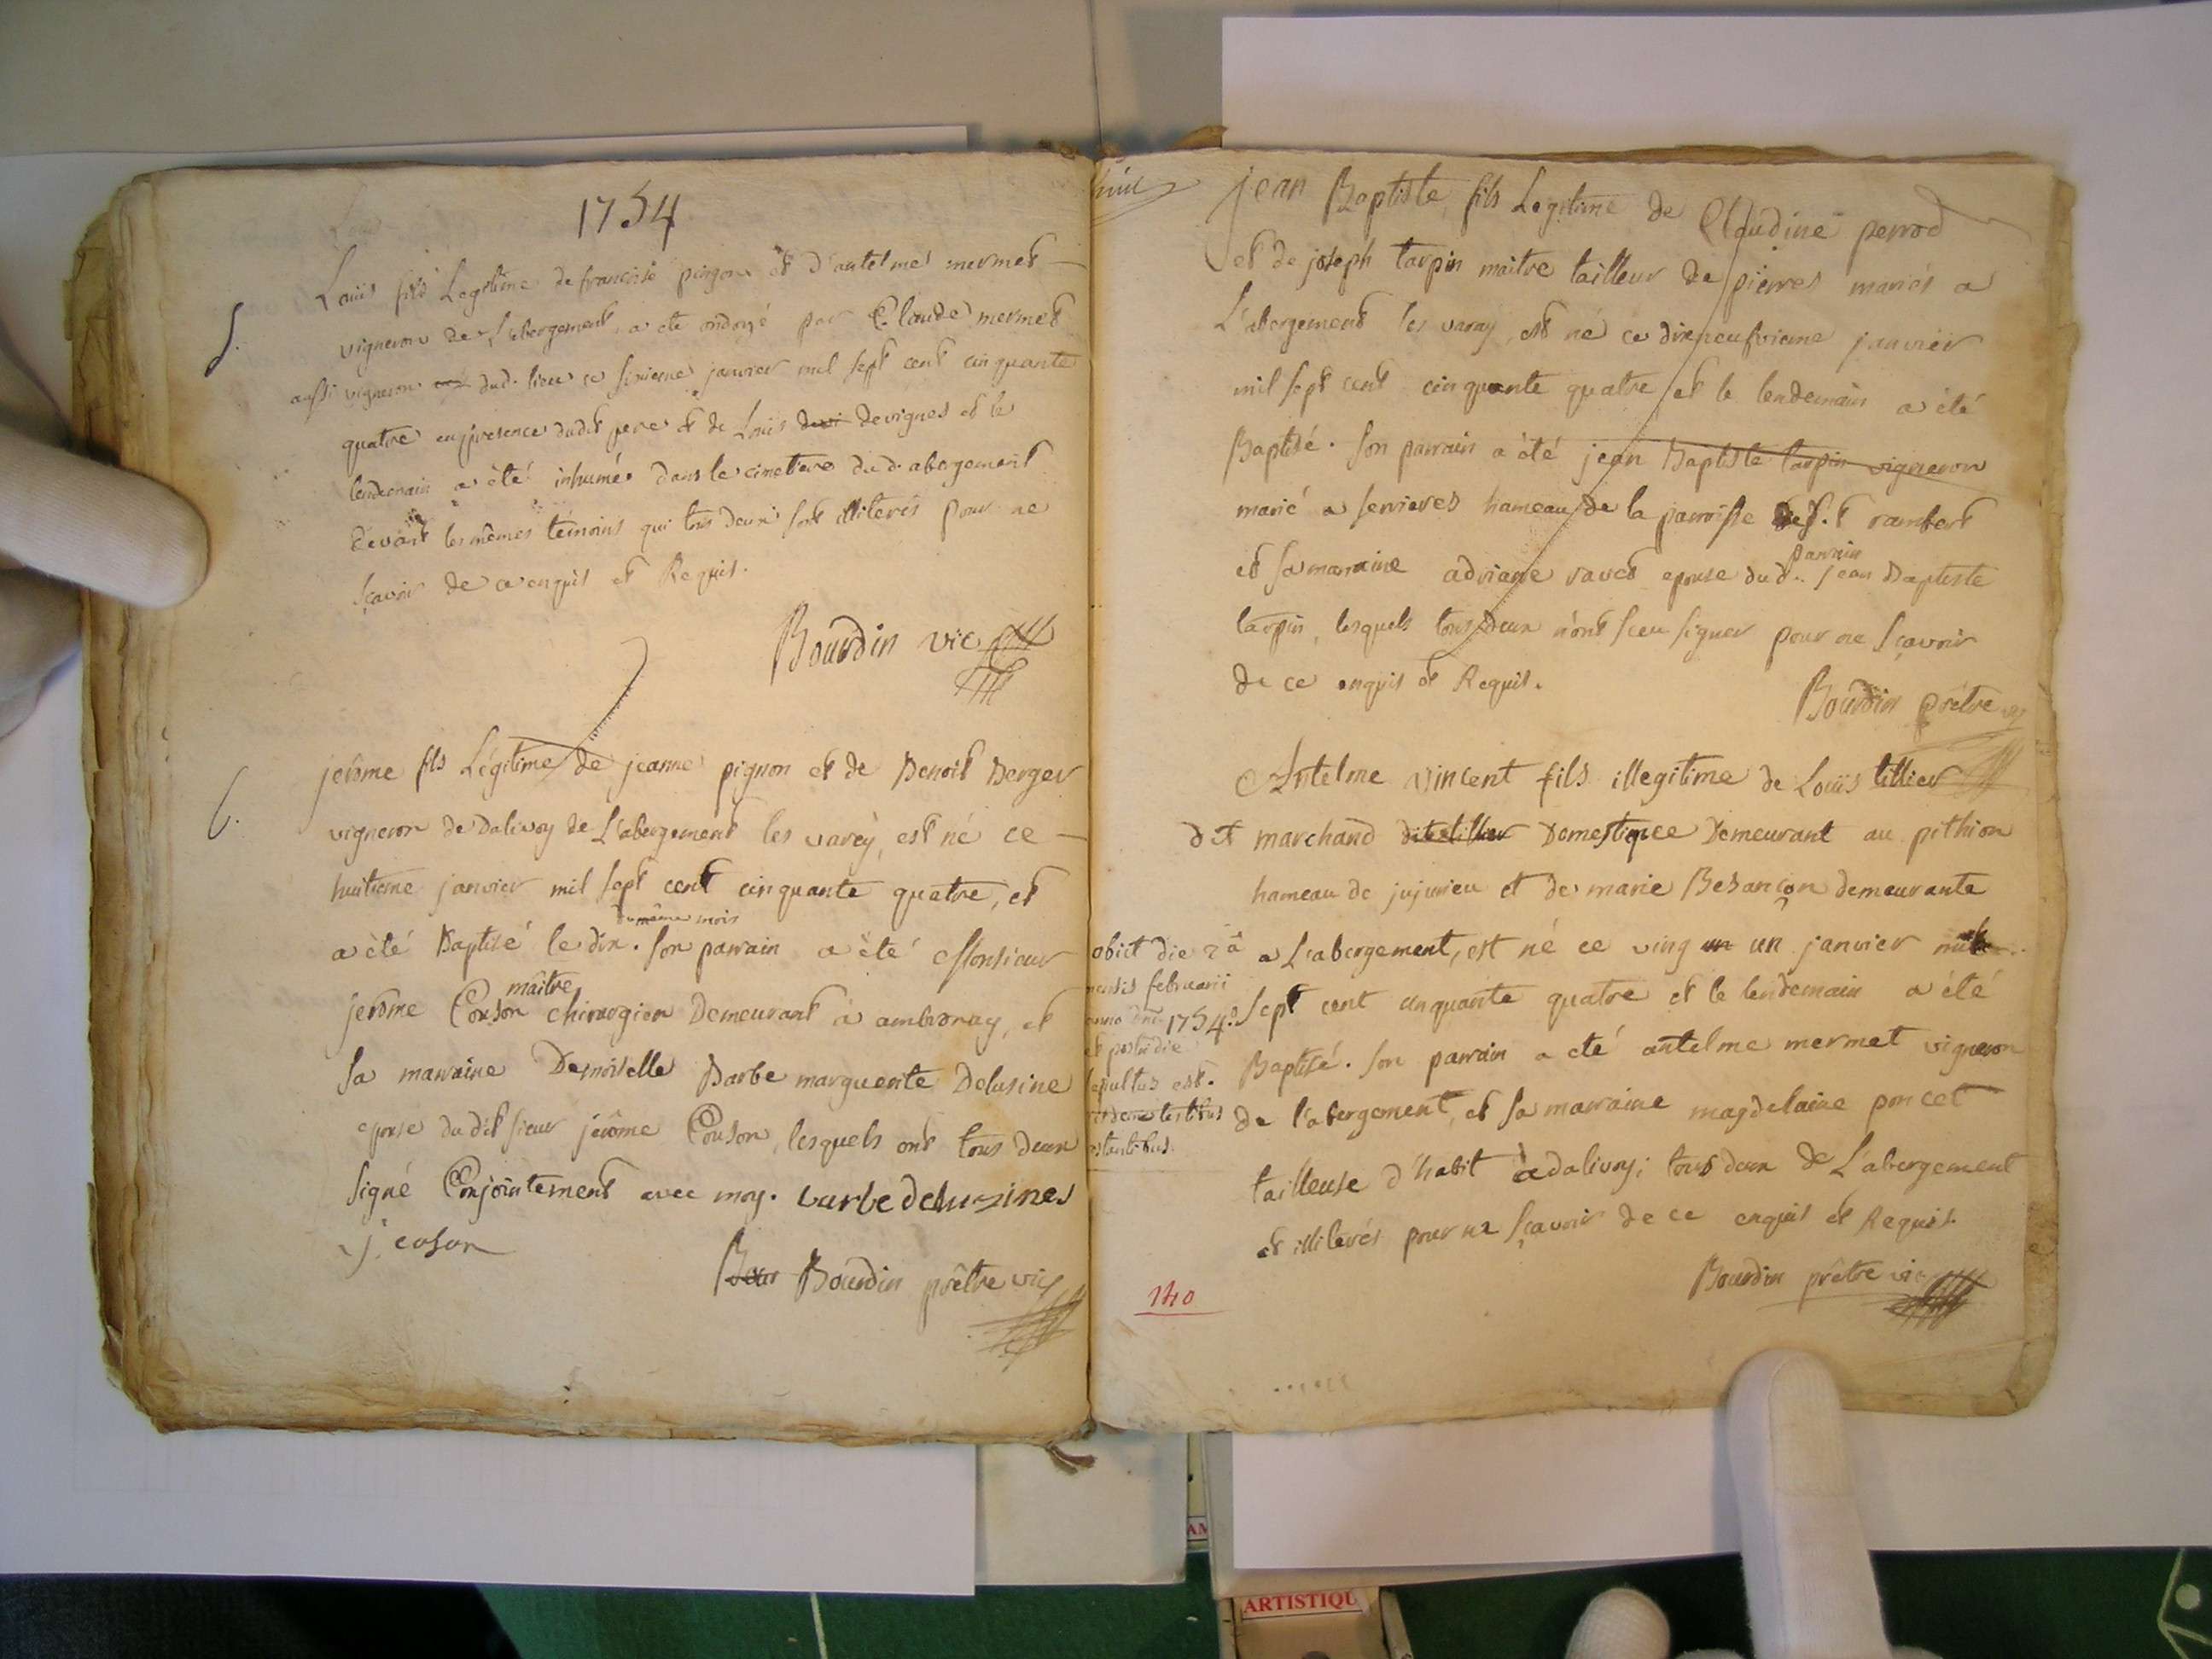 1754
5.
Louis fils Legitime de francoise pingon et d'antelme mermet
vigneron de L'abergement, a ete ondoyé par Claude mermet
aussi vigneron dud. lieu ce sixieme janvier mil sept cent cinquante
quatre en presence dudit pere et de Louis devignes et le
lendemain a été inhumé dans le cimetiere dud. abergement
devant les mêmes témoins qui tous deux sont illiterés pour ne
sçavoir de ce enquis et Requis.
Bourdin vic
6.
jerôme fils Légitime de jeanne pignon et de Benoit Berger
vigneron de dalivoy de L'abergement les varey, est né ce
huitieme janvier mil sept cent cinquante quatre, et
du même mois
a été Baptisé le dix. son parrain a été Monsieur
maître
jerôme Couson chirurgien Demeurant à ambronay, et
sa marraine Demoiselle Barbe marguerite Delusine
epouse dudit sieur jerôme Couson, lesquels ont tous deux
signé Conjointement avec moy. barbe delusines
j. coson
Bour Bourdin prêtre vic
huit
jean Baptiste, fils Legitime de Claudine perrod
et de joseph tarpin maitre tailleur de pierres mariés a
L'abergement les varay, est né ce dixneufvieme janvier
mil sept cent cinquante quatre et le lendemain a été
Baptisé. son parrain a été jean Baptiste tarpin vigneron
marié a servieres hameau de la parroisse de s.t rambert
parrain
et sa marraine adriane ravet epouse dud.. jean Baptiste
tarpin, lesquels tous deux n'ont sceu signer pour ne sçavoir
de ce enquis et Requis.
Bourdin prêtre vic
Antelme vincent fils illegitime de Louis tillier
dit marchand dit tillier Domestique Demeurant au pithion
hameau de jujurieu et de marie Besançon demeurante
a L'abergement, est né ce ving un un janvier mil
sept cent cinquante quatre et le lendemain a été
Baptisé. son parrain a eté antelme mermet vigneron
de l'abergement, et sa marraine magdelaine poncet
tailleuse d'habit à dalivoy; tous deux de L'abergement
et illiterés pour ne sçavoir de ce enquis et Requis.
Bourdin prêtre vic
obiit die 2a
mensis februarii
anno dni 1754o
et postridie
sepultus est.
iisdem testibus
astantibus.
140
ARTISTIQU